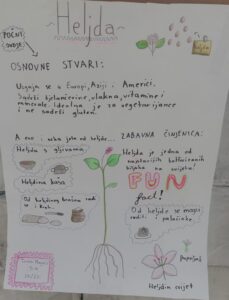 ~Heljda~
POČNI OVDJE:
OSNOVNE STVARI:
Uzgaja se u Europi, Aziji i Americi.
Sadrži bjelančevine, vlakna, vitamine i
minerale. Idealna je za vegetarijance
i ne sadrži gluten.
A evo i neka jela od heljde...
Heljda s gljivama
Heljdina kaša
Od heljdinog brašna radi
se i kruh.
ZABAVNA ČINJENICA:
Heljda je jedna od
najstarijih
biljaka na svijetu!
FUN
fact!
Od heljde se mogu
raditi i palačinke
Heljdin cvijet